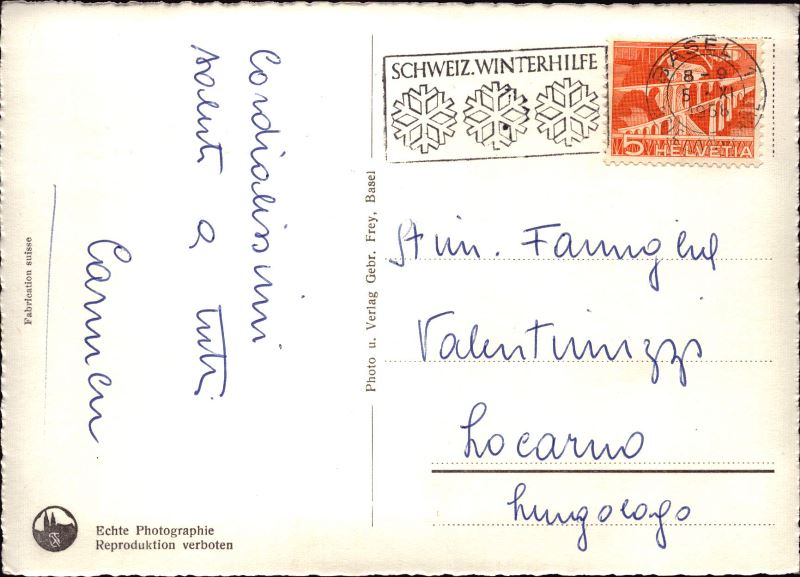 Cordialissimi
saluti a tutti
Carmen
Fabrication suisse
Echte Photographie
Reproduktion verboten
Photo u. Verlag Gebr. Frey, Basel
SCHWEIZ. WINTERHILFE
BASEL
8-9
5 HELVETIA
Stim. Famiglia
Valentinizzi
Locarno
Lungolago